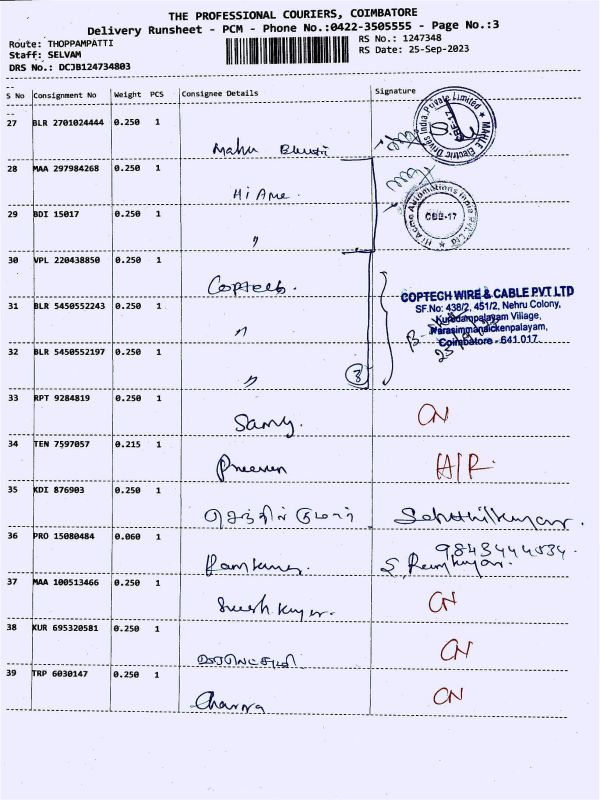 THE PROFESSIONAL COURIERS, COIMBATORE
Delivery Runsheet - PCM - Phone No.:0422-3505555 - Page No.:3
Route: THOPPAMPATTI
Staff: SELVAM
DRS No.: DCJB124734803
RS No.: 1247348
RS Date: 25-Sep-2023
S No Consignment No Weight PCS Consignee Details Signature
27 BLR 2701024444 0.250 1
MAHLE Electric Drives India Private Limited
CBE-17
28 MAA 297984268 0.250 1
Hi Acme
29 BDI 15017 0.250 1
"
Hi Acme Automations India Pvt. Ltd
CBE-17
30 VPL 220438850 0.250 1
Coptech.
31 BLR 5450552243 0.250 1
"
COPTECH WIRE & CABLE PVT LTD
SF.No: 438/2, 451/2, Nehru Colony,
Kurudampalayam Village,
Narasimmanaickenpalayam,
Coimbatore - 641 017.
32 BLR 5450552197 0.250 1
"
3
33 RPT 9284819 0.250 1
Samy.
CN
34 TEN 7597057 0.215 1
Praveen
H/R
35 KDI 876903 0.250 1
செந்தில் குமார்
Senthilkumar.
9843444534.
36 PRO 15080484 0.060 1
Ramkumar
S. Ramkumar.
37 MAA 100513466 0.250 1
Suresh kumar.
CN
38 KUR 695320581 0.250 1
CN
39 TRP 6030147 0.250 1
CN